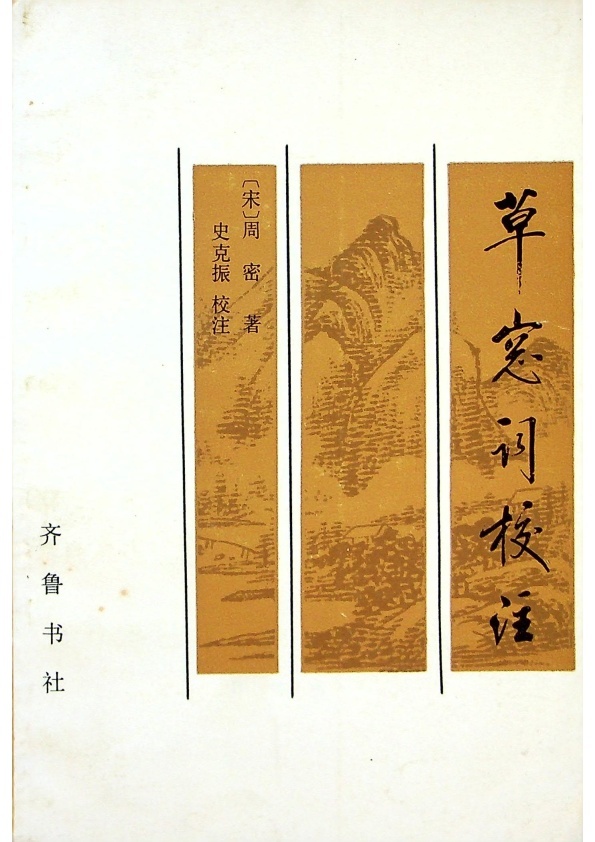 草窗词校注
〔宋〕周密 著
史克振 校注
齐鲁书社